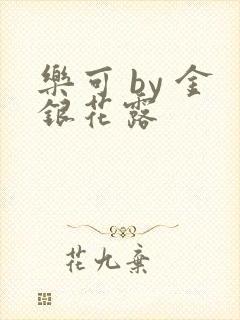 樂可 by 金
銀花露
花九棄